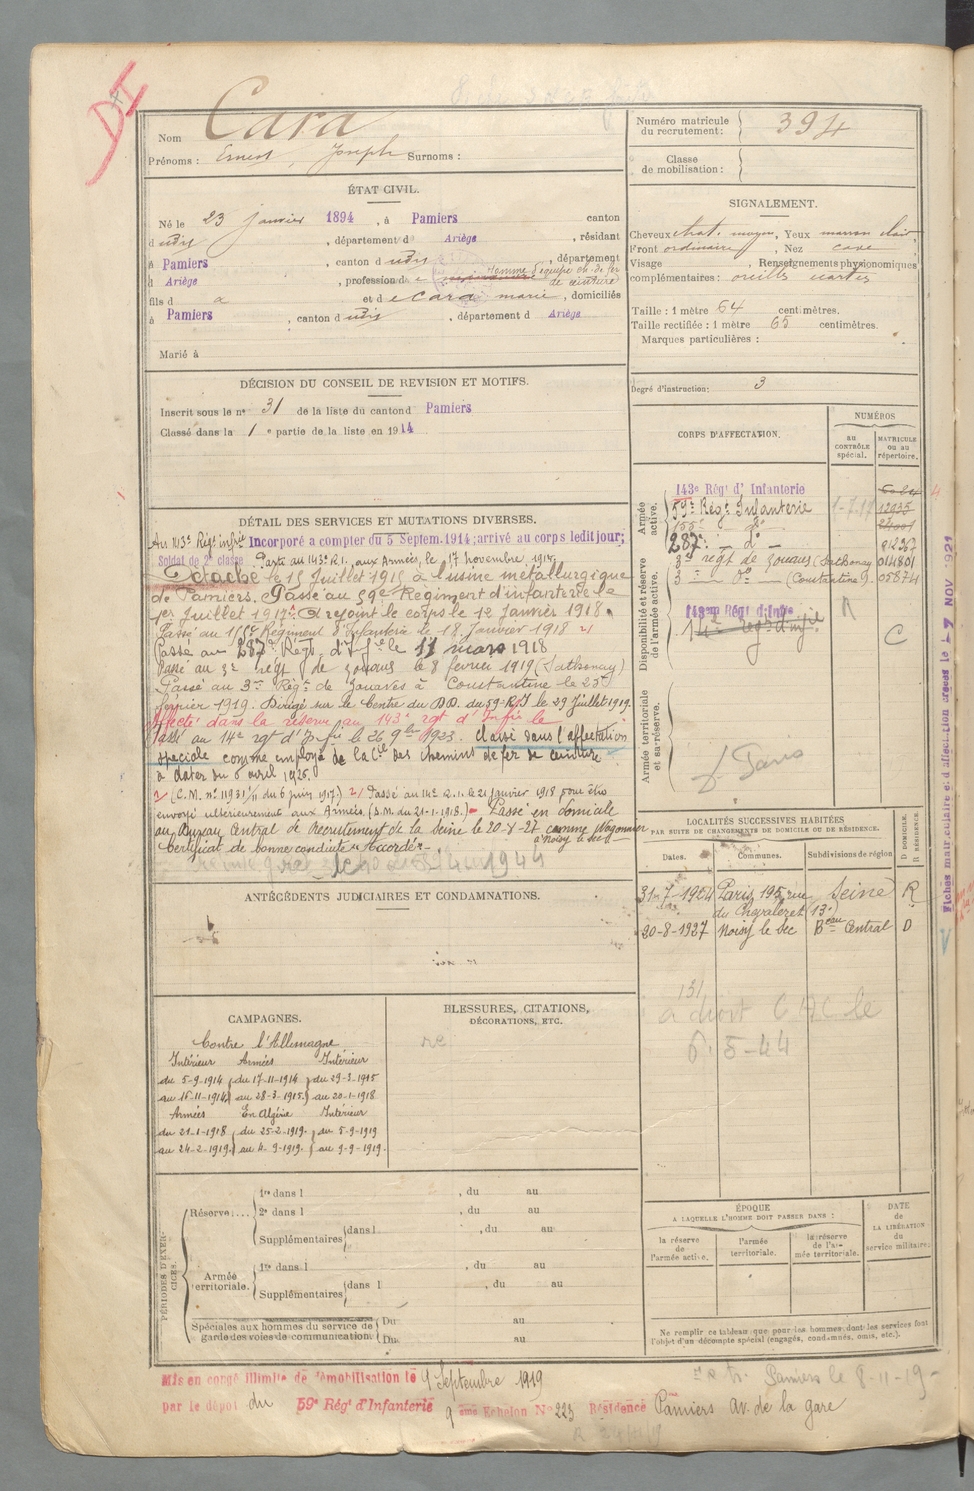 DI
Nom Cara
Prénoms : Ernest, Joseph Surnoms :
Numéro matricule du recrutement : 394
Classe de mobilisation :
ÉTAT CIVIL.
Né le 23 janvier 1894, à Pamiers canton
d udis, département d Ariège, résidant
à Pamiers, canton d udis, département
d Ariège, profession d homme d'équipe ch. de fer
de ceinture
fils d a et de Cara marie, domiciliés
à Pamiers, canton d udis, département d Ariège
Marié à
SIGNALEMENT.
Cheveux chat. moyen, Yeux marron clair
Front ordinaire, Nez cave
Visage , Renseignements physionomiques
complémentaires : oreilles écartées
Taille : 1 mètre 64 centimètres.
Taille rectifiée : 1 mètre 65 centimètres.
Marques particulières :
Degré d'instruction : 3
DÉCISION DU CONSEIL DE REVISION ET MOTIFS.
Inscrit sous le no 31 de la liste du canton d Pamiers
Classé dans la 1 e partie de la liste en 1914
CORPS D'AFFECTATION.
NUMÉROS
au CONTRÔLE spécial.
MATRICULE ou au répertoire.
Armée active.
143e Régt d'Infanterie
59e Régt Infanterie 12935
287e - do - 81267
Disponibilité et réserve de l'armée active.
3e regt de zouaves (Sathonay 014801
3e do (Constantine). 05874
143eme Régt d'Infie
14e regt d'infie
C
Armée territoriale et sa réserve.
Paris
DÉTAIL DES SERVICES ET MUTATIONS DIVERSES.
Au 143e Régt infie Incorporé à compter du 5 Septem. 1914; arrivé au corps ledit jour;
Soldat de 2e classe Parti au 143e R.I. aux Armées, le 17 novembre 1914.
Détaché le 15 Juillet 1915 à l'usine métallurgique
de Pamiers. Passé au 59e Régiment d'infanterie le
1er Juillet 1917. A rejoint le corps le 12 Janvier 1918.
Passé au Régiment d'Infanterie le 18 Janvier 1918 2)
Passé au 287e Régt d'Infie le 11 mars 1918
Passé au 3e regt de zouaves le 8 février 1919 (Sathonay)
Passé au 3me Régt de Zouaves à Constantine le 25
février 1919. Dirigé sur le Centre du D.D. du 59e R.I le 29 Juillet 1919.
Affecté dans la réserve au 143e rgt d'Infie le
Passé au 14e rgt d'Infie le 26 9bre 1923. Classé dans l'affectation
spéciale comme employé de la Cie des Chemins de fer de ceinture
à dater du 6 avril 1926.
(C.M. no 11931/11 du 6 juin 1917.) 2) Passé au 14e R.I. le 21 janvier 1918 pour être
envoyé ultérieurement aux Armées (D.M. du 21-1-1918.) Passé en domicile
au Bureau Central de Recrutement de la Seine le 20-8-27 comme Wagonnier
à Noisy le Sec
Certificat de bonne conduite "Accordé".
1944
LOCALITÉS SUCCESSIVES HABITÉES
PAR SUITE DE CHANGEMENTS DE DOMICILE OU DE RÉSIDENCE.
Dates. Communes. Subdivisions de région D DOMICILE. R RÉSIDENCE.
31-7-1924 Paris, 195, rue Seine R
du Chevaleret (13e)
20-8-1927 Noisy le Sec Beau Central D
131
a droit C A C le
6-5-44
ANTÉCÉDENTS JUDICIAIRES ET CONDAMNATIONS.
CAMPAGNES.
Contre l'Allemagne
Intérieur Armées Intérieur
du 5-9-1914 du 17-11-1914 du 29-3-1915
au 16-11-1914 au 28-3-1915. au 20-1-1918
Armées En Algérie Intérieur
du 21-1-1918 du 25-2-1919. du 5-9-1919
au 24-2-1919. au 4-9-1919. au 9-9-1919.
BLESSURES, CITATIONS,
DÉCORATIONS, ETC.
PÉRIODES D'EXERCICES.
Réserve....
1re dans l , du au
2e dans l , du au
Supplémentaires dans l , du au
Armée territoriale.
1re dans l , du au
Supplémentaires dans l , du au
Spéciales aux hommes du service de garde des voies de communication.
Du au
Du au
ÉPOQUE
A LAQUELLE L'HOMME DOIT PASSER DANS :
la réserve de l'armée active.
l'armée territoriale.
la réserve de l'armée territoriale.
DATE de LA LIBÉRATION du service militaire.
Ne remplir ce tableau que pour les hommes dont les services font
l'objet d'un décompte spécial (engagés, condamnés, omis, etc.).
Mis en congé illimité de démobilisation le 9 Septembre 1919
Pamiers le 8-11-19
par le dépôt du 59e Régt d'Infanterie 9eme Echelon No 223 Résidence Pamiers Av. de la gare